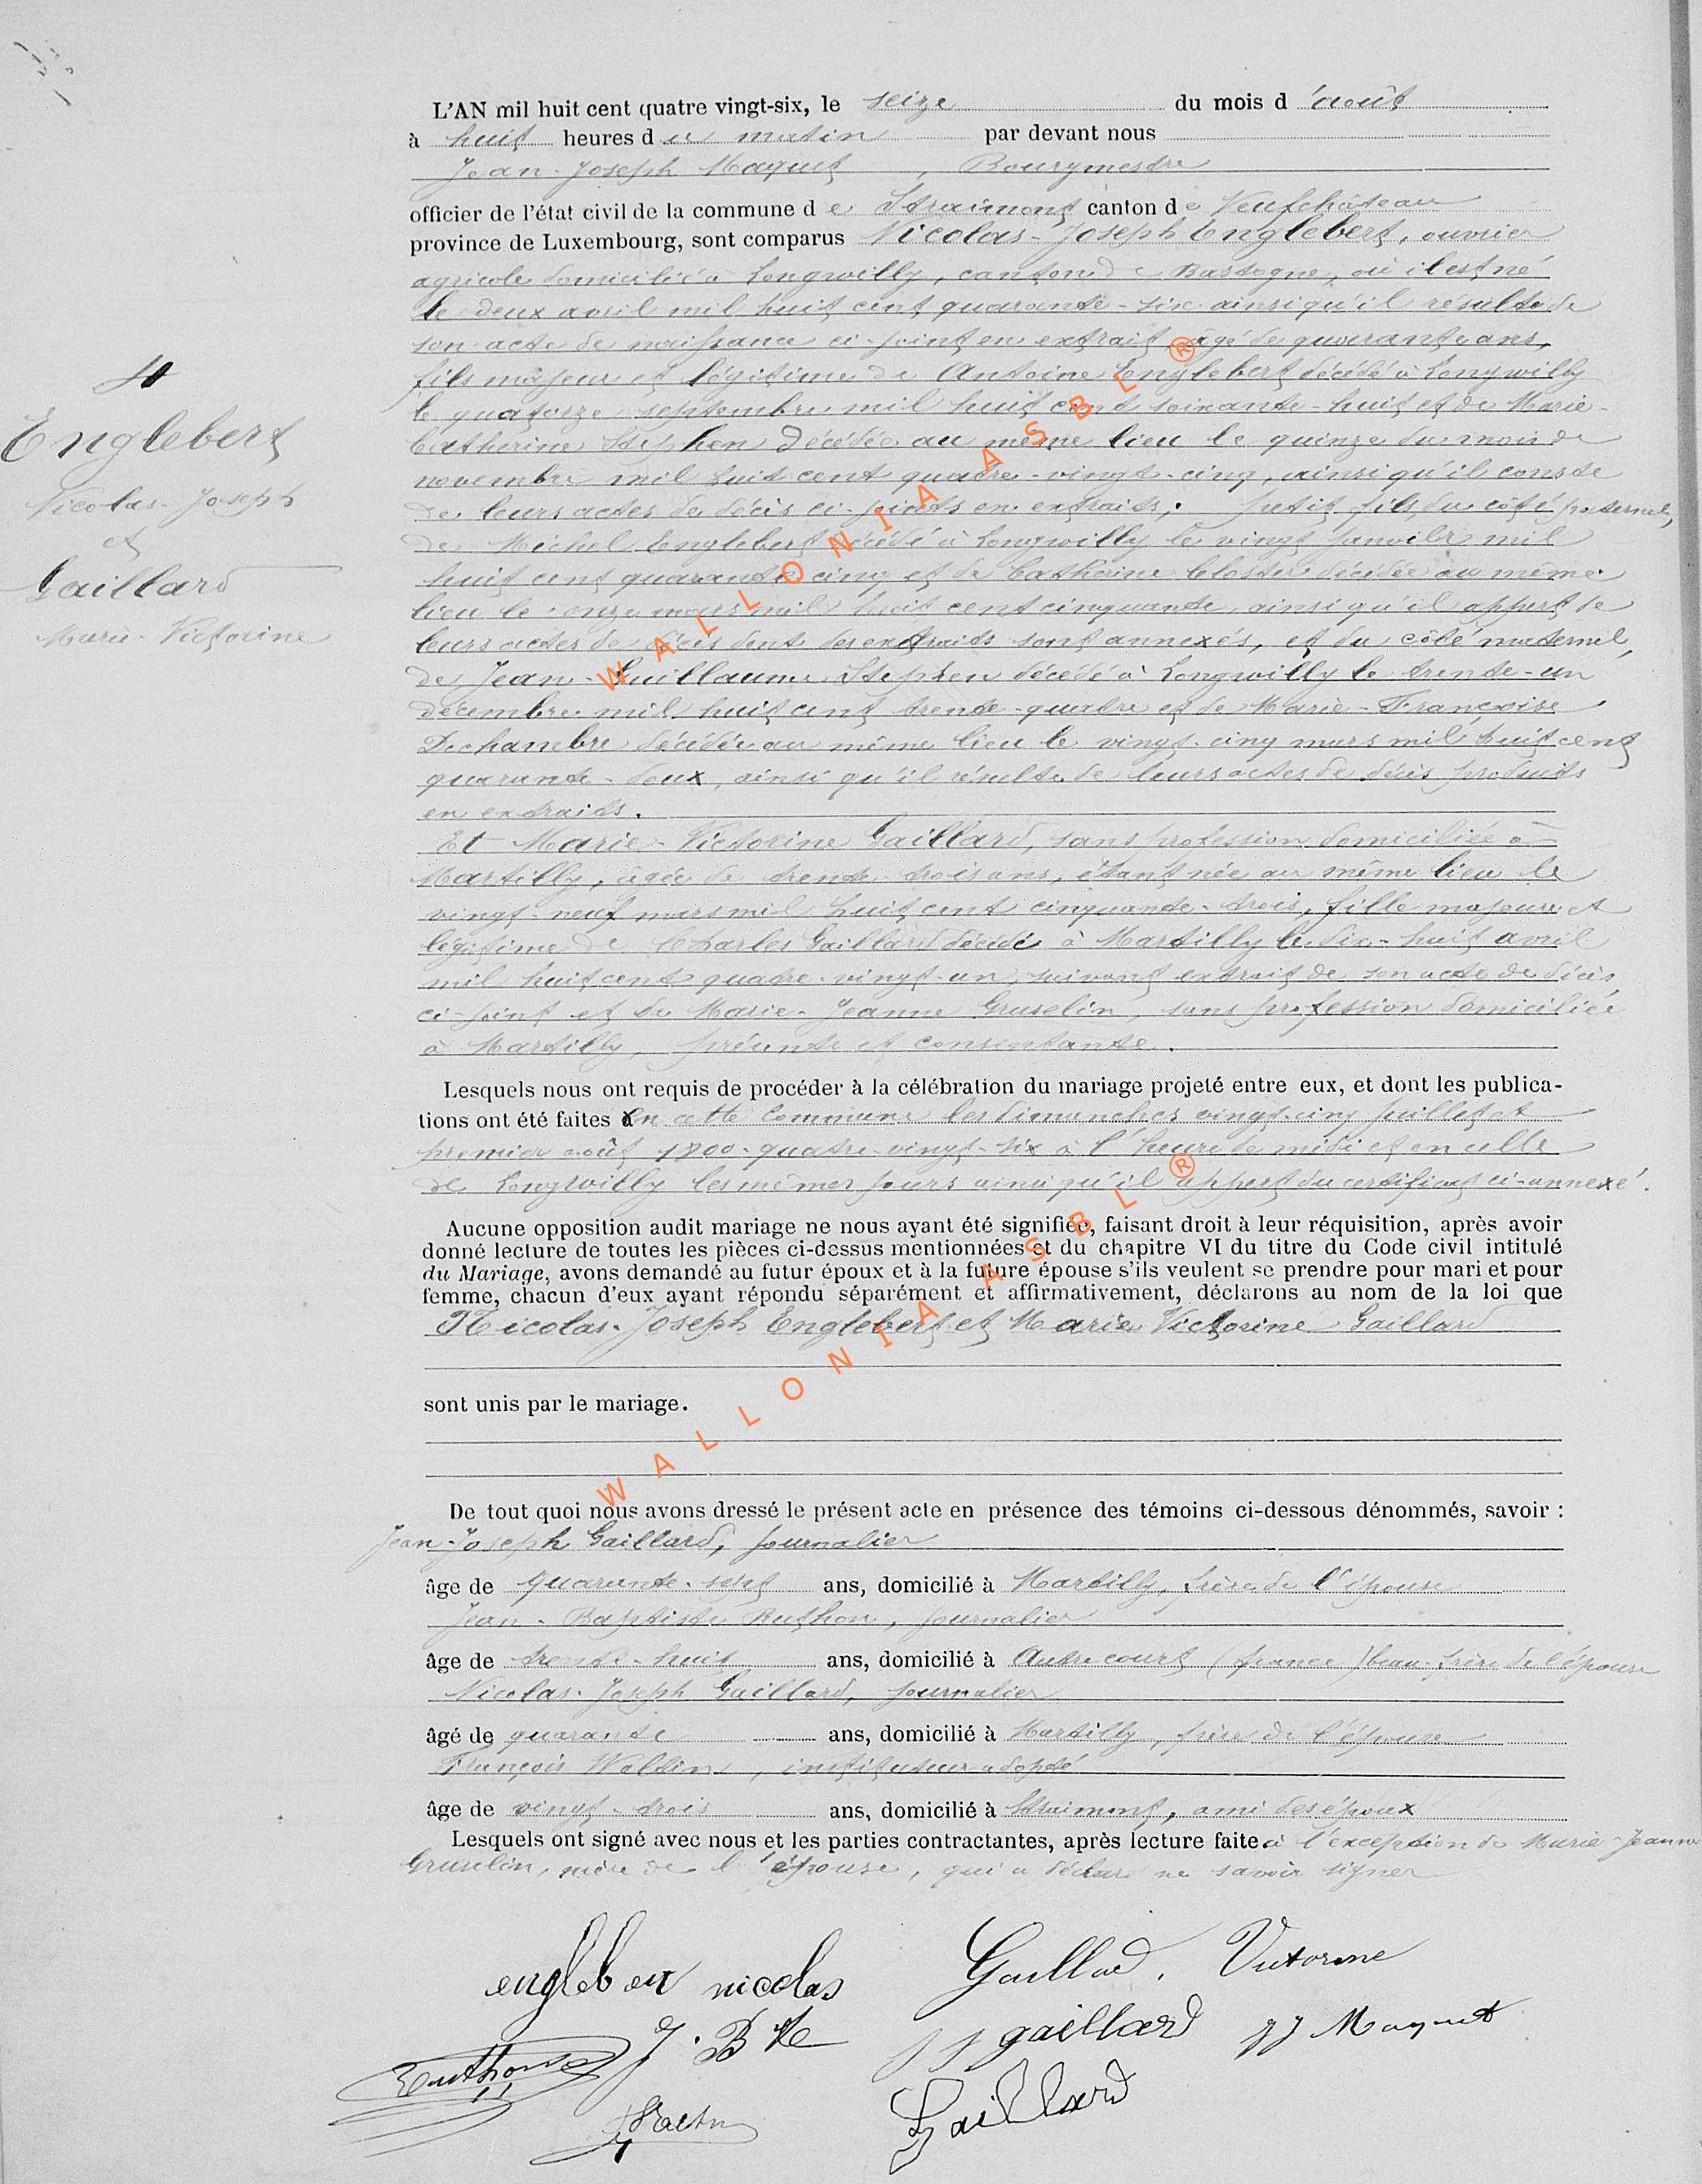 L'AN mil huit cent quatre vingt-six, le seize du mois d'août
à huit heures du matin par devant nous
Jean-Joseph Maquet, Bourgmestre
officier de l'état civil de la commune de Straimont canton de Neufchâteau
province de Luxembourg, sont comparus Nicolas-Joseph Englebert, ouvrier
agricole domicilié à Longwilly, canton de Bastogne, où il est né
le deux avril mil huit cent quarante-six ainsi qu'il résulte de
son acte de naissance ci-joint en extrait, âgé de quarante ans,
fils majeur et légitime de Antoine Englebert décédé à Longwilly
le quatorze septembre mil huit cent soixante-huit et de Marie-
Catherine Stephen décédée au même lieu le quinze du mois de
novembre mil huit cent quatre-vingt-cinq, ainsi qu'il conste
de leurs actes de décès ci-joints en extraits; petit fils, du côté paternel,
de Michel Englebert décédé à Longwilly le vingt janvier mil
huit cent quarante cinq et de Catherine décédée au même
lieu le onze mars mil huit cent cinquante, ainsi qu'il appert de
leurs actes de décès dont des extraits sont annexés, et du côté maternel,
de Jean-Guillaume Stephen décédé à Longwilly le trente-un
décembre mil huit cent trente-quatre et de Marie-Françoise
Dechambre décédée au même lieu le vingt-cinq mars mil huit cent
quarante-deux, ainsi qu'il résulte de leurs actes de décès produits
en extraits.
Et Marie-Victorine Gaillard, sans profession domiciliée à
Martilly, âgée de trente-trois ans, étant née au même lieu le
vingt-neuf mars mil huit cent cinquante-trois, fille majeure et
légitime de Charles Gaillard décédé à Martilly le dix-huit avril
mil huit cent quatre-vingt-un, suivant extrait de son acte de décès
ci-joint et de Marie-Jeanne Gruselin, sans profession domiciliée
à Martilly, présente et consentante.
4
Englebert
Nicolas-Joseph
et
Gaillard
Marie-Victorine
Lesquels nous ont requis de procéder à la célébration du mariage projeté entre eux, et dont les publica-
tions ont été faites en cette commune les dimanches vingt-cinq juillet et
premier août 1800-quatre-vingt-six à l'heure de midi et en celle
de Longwilly les mêmes jours ainsi qu'il appert du certificat ci-annexé.
Aucune opposition audit mariage ne nous ayant été signifiée, faisant droit à leur réquisition, après avoir
donné lecture de toutes les pièces ci-dessus mentionnées et du chapitre VI du titre du Code civil intitulé
du Mariage, avons demandé au futur époux et à la future épouse s'ils veulent se prendre pour mari et pour
femme, chacun d'eux ayant répondu séparément et affirmativement, déclarons au nom de la loi que
Nicolas-Joseph Englebert et Marie Victorine Gaillard
sont unis par le mariage.
De tout quoi nous avons dressé le présent acte en présence des témoins ci-dessous dénommés, savoir :
Jean-Joseph Gaillard, journalier
âge de quarante-sept ans, domicilié à Martilly, frère de l'épouse
Jean-Baptiste Buthon, journalier
âge de trente-huit ans, domicilié à Autrecourt (france) beau-frère de l'épouse
Nicolas-Joseph Gaillard, journalier
âgé de quarante ans, domicilié à Martilly, frère de l'épouse
François instituteur adopté
âge de vingt-trois ans, domicilié à Straimont, ami des époux
Lesquels ont signé avec nous et les parties contractantes, après lecture faite à l'exception de Marie-Jeanne
Gruselin, mère de l'épouse, qui a déclaré ne savoir signer
englebert nicolas Gaillard. Victorine
J. Bte jj gaillard JJ Maquet
Gaillard
WALLONIA ASBL ®
WALLONIA ASBL ®